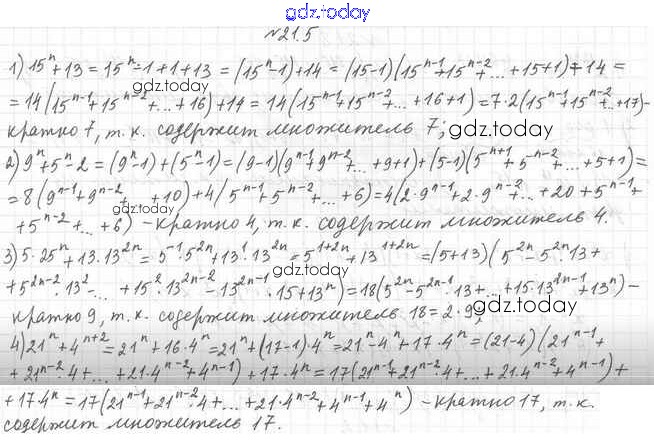 gdz.today
№21.5
1) 15ⁿ+13 = 15ⁿ-1+1+13 = (15ⁿ-1)+14 = (15-1)(15ⁿ⁻¹+15ⁿ⁻²+...+15+1)+14 =
gdz.today
= 14(15ⁿ⁻¹+15ⁿ⁻²+...+16)+14 = 14(15ⁿ⁻¹+15ⁿ⁻²+...+16+1) = 7·2(15ⁿ⁻¹+15ⁿ⁻²+...+17)-
кратно 7, т.к. содержит множитель 7;
gdz.today
2) 9ⁿ+5ⁿ-2 = (9ⁿ-1)+(5ⁿ-1) = (9-1)(9ⁿ⁻¹+9ⁿ⁻²+...+9+1)+(5-1)(5ⁿ⁺¹+5ⁿ⁻²+...+5+1) =
gdz.today
= 8(9ⁿ⁻¹+9ⁿ⁻²+...+10)+4(5ⁿ⁻¹+5ⁿ⁻²+...+6) = 4(2·9ⁿ⁻¹+2·9ⁿ⁻²+...+20+5ⁿ⁻¹+
gdz.today
+5ⁿ⁻²+...+6) - кратно 4, т.к. содержит множитель 4.
3) 5·25ⁿ+13·13²ⁿ = 5⁻¹·5²ⁿ+13¹·13²ⁿ = 5¹⁺²ⁿ+13¹⁺²ⁿ = (5+13)(5²ⁿ-5²ⁿ·13+
gdz.today
+5²ⁿ⁻²·13²-...+15²·13²ⁿ⁻²-13²ⁿ⁻¹·15+13ⁿ) = 18(5²ⁿ-5²ⁿ⁻¹·13+...+15·13²ⁿ⁻¹+13ⁿ)-
кратно 9, т.к. содержит множитель 18=2·9;
gdz.today
4) 21ⁿ+4ⁿ⁺² = 21ⁿ+16·4ⁿ = 21ⁿ+(17-1)·4ⁿ = 21ⁿ-4ⁿ+17·4ⁿ = (21-4)(21ⁿ⁻¹+
+21ⁿ⁻²·4+...+21·4ⁿ⁻²+4ⁿ⁻¹)+17·4ⁿ = 17(21ⁿ⁻¹+21ⁿ⁻²·4+...+21·4ⁿ⁻²+4ⁿ⁻¹)+
+17·4ⁿ = 17(21ⁿ⁻¹+21ⁿ⁻²·4+...+21·4ⁿ⁻²+4ⁿ⁻¹+4ⁿ) - кратно 17, т.к.
содержит множитель 17.
gdz.today